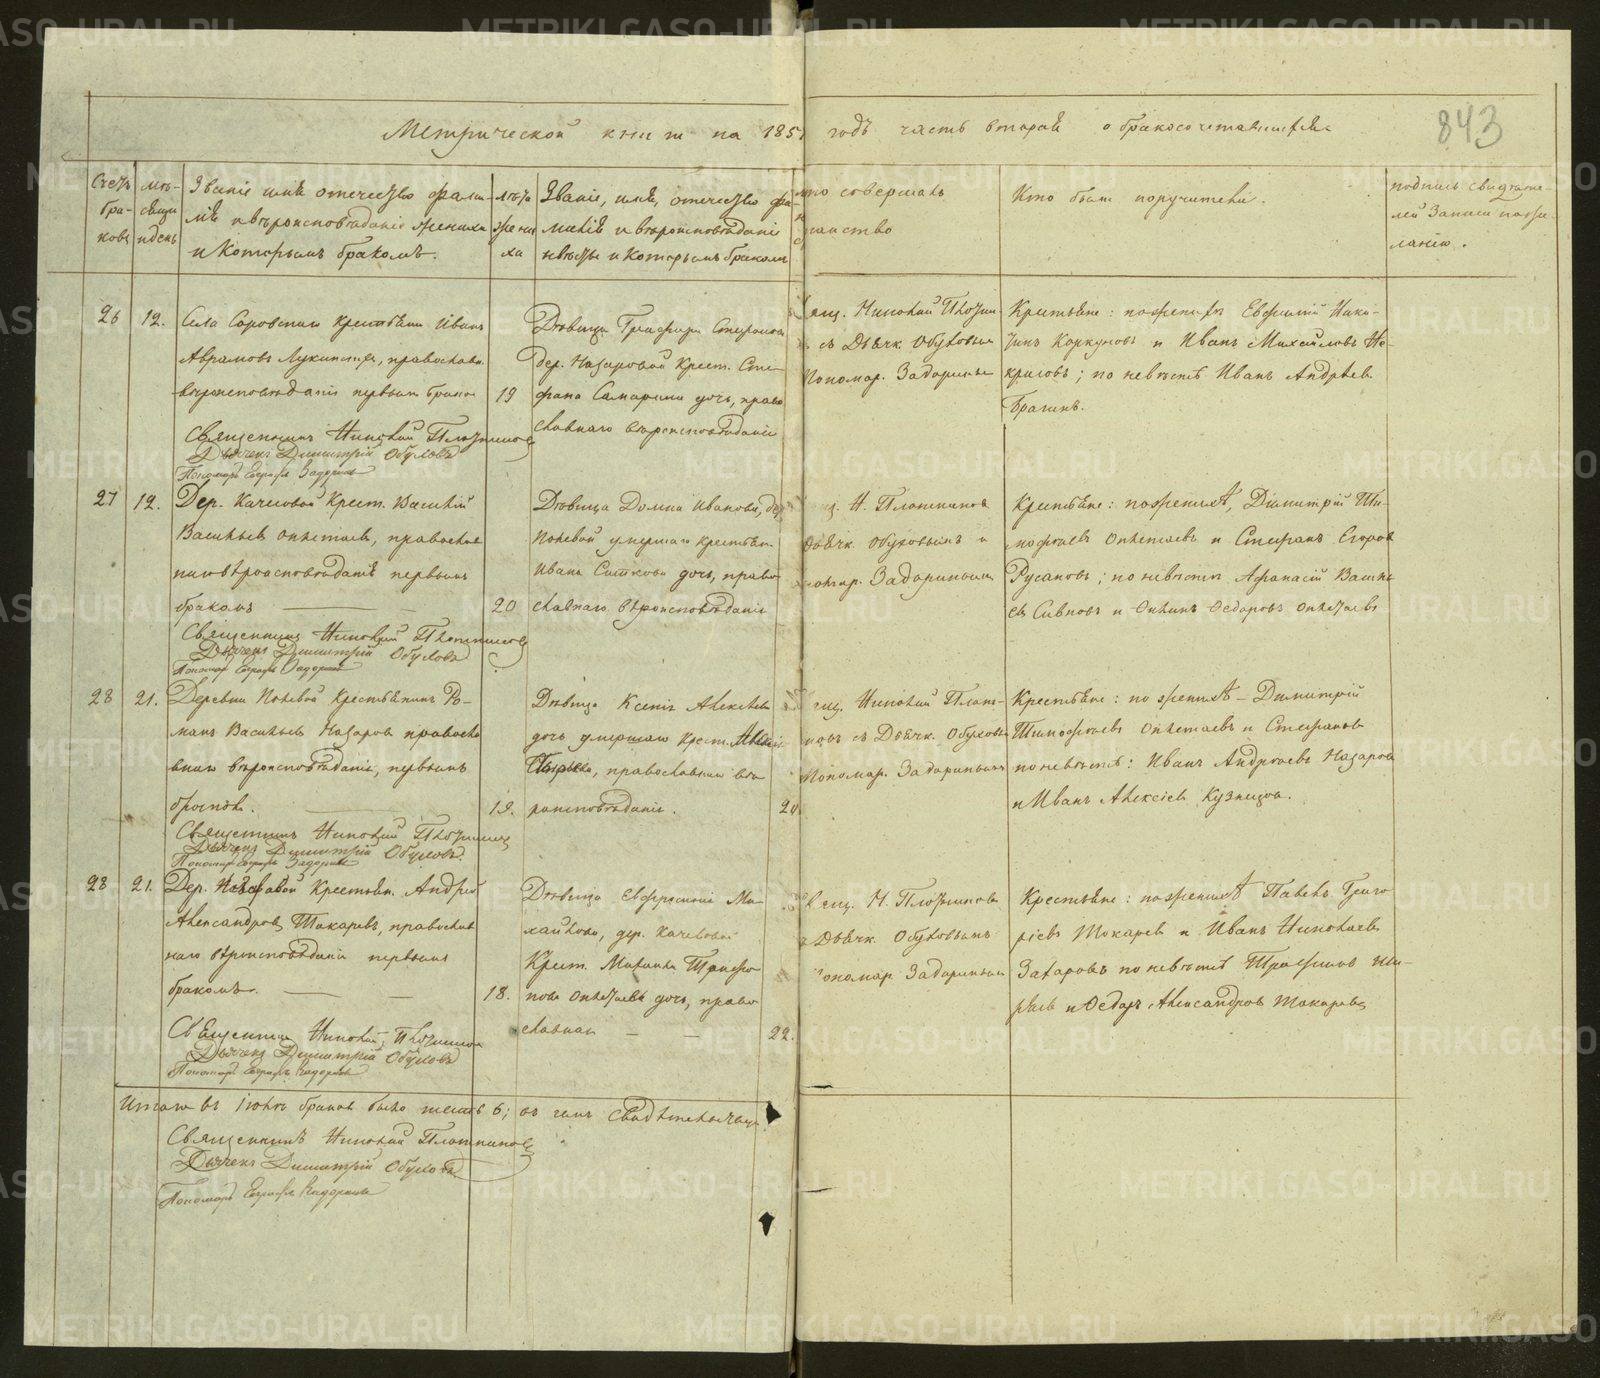 Метрической книги на 1851 годъ часть вторая о бракосочетавшихся
843
Счетъ бра- ковъ
Мѣ- сяцъ и день
Званіе имя отечество фами- лія и вѣроисповѣданіе жениха и которымъ бракомъ.
Лѣта жени- ха
Званіе, имя, отечество фа- милія и вѣроисповѣданіе невѣсты и которымъ бракомъ
Кто совершалъ таинство
Кто были поручители.
подпись свидѣте- лей записи по же- ланію.
26
12.
Села Воровскаго Крестьянинъ Иванъ
Аврамовъ Лукиныхъ, православн.
вѣроисповѣданія первымъ бракомъ
19
Священникъ Николай Плотниковъ
Дьячекъ Димитрій Обуховъ
Пономарь Евграфъ Задоринъ
Дѣвица Глафира Стефанова
дер. Назаровой Крест. Сте-
фана Самарина дочь, право
славнаго вѣроисповѣданія
Свящ. Николай Плотни
съ Дьячк. Обуховым
Пономар. Задоринымъ
Крестьяне: по женихѣ Евфимій Ники-
тинъ Коркуновъ и Иванъ Михайловъ Не-
красовъ; по невѣстѣ Иванъ Андреевъ
Брагинъ.
27
12.
Дер. Качесовой Крест. Василій
Васильевъ Опленаевъ, православ
наго вѣроисповѣданія первымъ
бракомъ
20
Священникъ Николай Плотниковъ
Дьячекъ Димитрій Обуховъ
Пономарь Евграфъ Задоринъ
Дѣвица Домна Иванова, дер
Полевой умершаго крестьян.
Ивана Ситкова дочь, право
славнаго вѣроисповѣданія
Н. Плотниковъ
Дьячк. Обуховымъ и
Задоринымъ
Крестьяне: по женихѣ, Димитрій Ти-
мофѣевъ и Стефанъ Егоров
Русаковъ; по невѣстѣ Афанасій Василь
евъ Сивковъ и Ѳедоровъ
28
21.
Деревни Полевой Крестьянинъ Ро-
манъ Васильевъ Назаровъ православ
наго вѣроисповѣданія, первымъ
бракомъ.
19.
Священникъ Николай Плотниковъ
Дьячекъ Димитрій Обуховъ.
Пономарь Евграфъ Задоринъ
Дѣвица Ксенія Алексѣева
дочь умершаго крест.
православнаго вѣ
роисповѣданія.
20
Свящ. Николай Плот-
никовъ съ Дьячк. Обуховым
Пономар. Задоринымъ
Крестьяне: по женихѣ – Димитрій
Тимофѣевъ и Стефановъ
по невѣстѣ: Иванъ Андреевъ Назаровъ
и Иванъ Алексіевъ Кузнецовъ.
28
21.
Дер. Крестьян. Андрей
Александровъ Токаревъ, православ
наго вѣроисповѣданія первымъ
бракомъ.
18.
Священникъ Николай Плотниковъ
Дьячекъ Димитрій Обуховъ
Пономарь Евграфъ Задоринъ
Дѣвица Евфросинія Ми-
хайлова, дер. Качесовой
Крест. Михаила Трифо
нова дочь, право
славная
22.
Свящ. Н. Плотниковъ
съ Дьячк. Обуховымъ
Пономар. Задоринымъ
Крестьяне: по женихѣ Павелъ Григо
ріевъ Токаревъ и Иванъ Николаевъ
Захаровъ по невѣстѣ
и Ѳедоръ Александровъ Токаревъ
Итого въ Іюлѣ браковъ было шесть 6; въ чемъ свидѣтельствуемъ
Священникъ Николай Плотниковъ
Дьячекъ Димитрій Обуховъ
Пономарь Евграфъ Задоринъ
METRIKI.GASO-URAL.RU